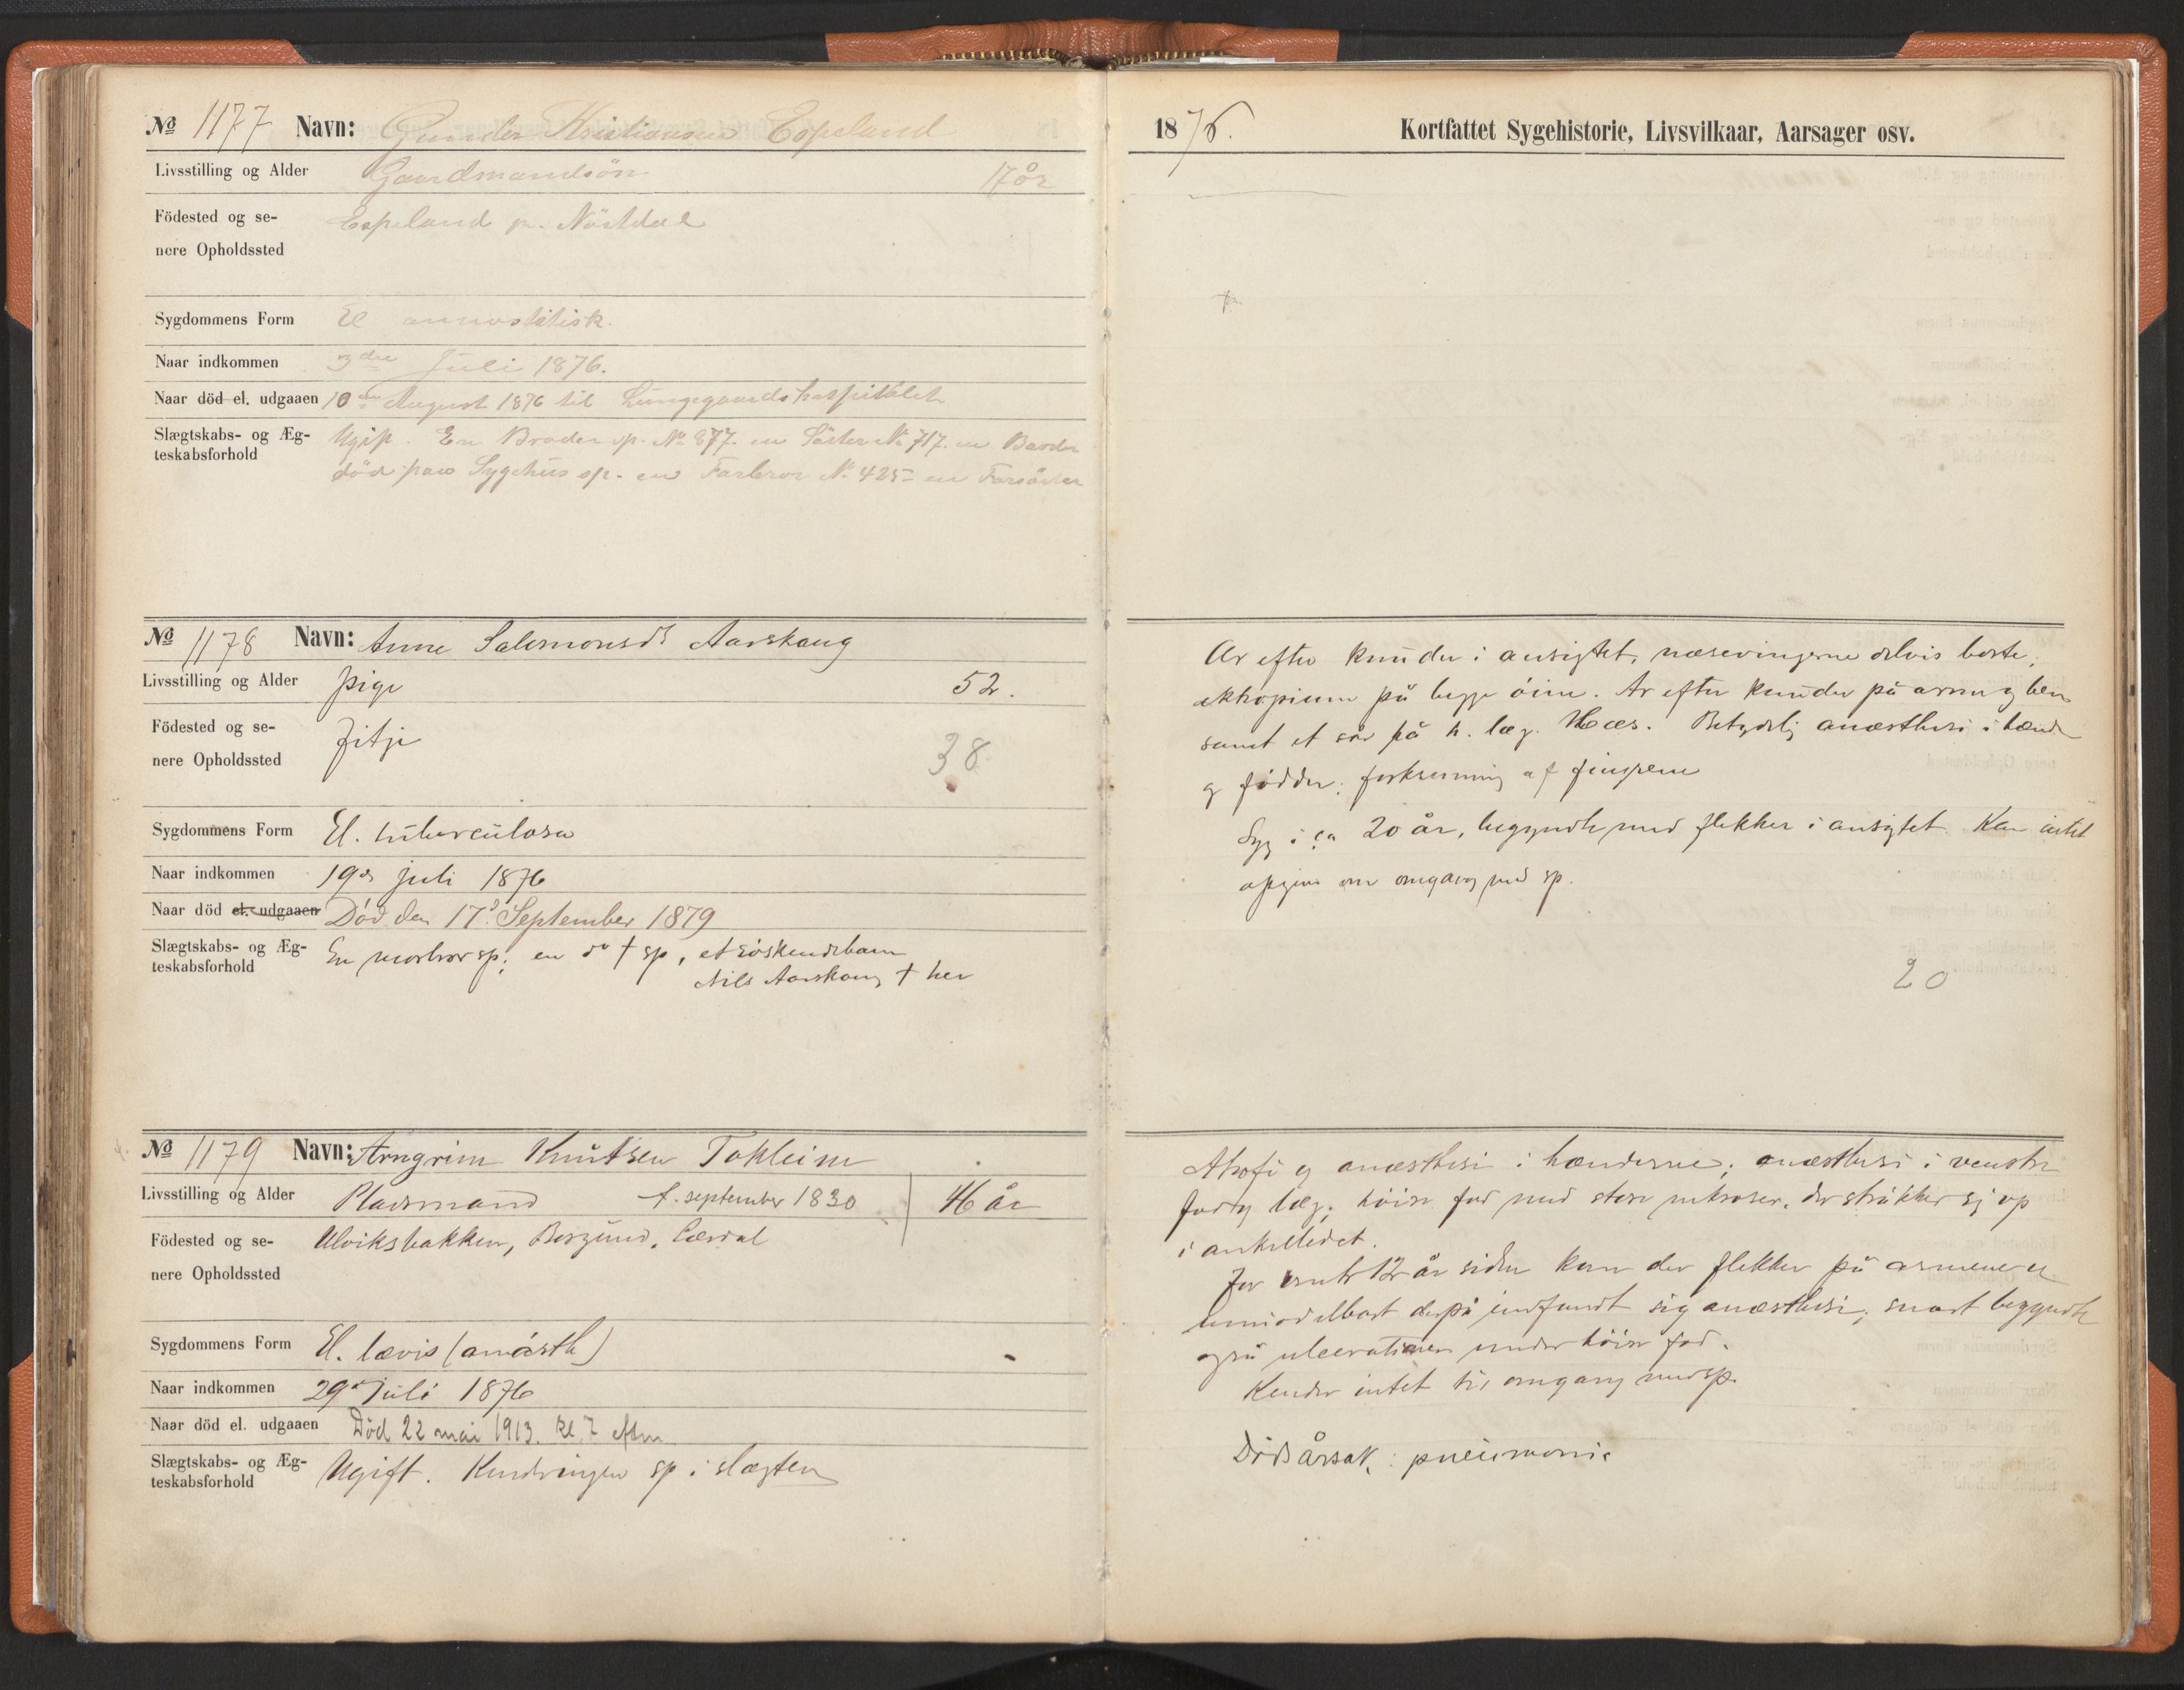 № 1177 Navn: Gunder Kristiansen Espeland
Livsstilling og Alder Gaardmandsön 17 år
Födested og se-
nere Opholdssted
Espeland pr. Nöstdal
Sygdommens Form El
Naar indkommen 3die Juli 1876.
Naar död el. udgaaen 10de August 1876 til Lungegaardshospitalet
Slægtskabs- og Æg-
teskabsforhold
Ugift. En Broder sp. № 877. en Söster № 717. en Broder
död paa Sygehus sp. en Farbror № 425 en Farsöster
№ 1178 Navn: Anne Salomonsdr Aarskaug
Livsstilling og Alder Pige 52.
Födested og se-
nere Opholdssted
Fitje
38
Sygdommens Form El. tuberculosa
Naar indkommen 19de juli 1876
Naar död el. udgaaen Död den 17de September 1879
Slægtskabs- og Æg-
teskabsforhold
En morbror sp; en do † sp, et söskendebarn
Nils Aarskoug † her
№ 1179 Navn: Arngrim Knutsen Tokleim
Livsstilling og Alder Pladsmand f. september 1830 46 år
Födested og se-
nere Opholdssted
Ulviksbakken, Borgund, Lærdal
Sygdommens Form El. lævis (anästh)
Naar indkommen 29de juli 1876
Naar död el. udgaaen Död 22 mai 1913. kl. 7 eftm
Slægtskabs- og Æg-
teskabsforhold
Ugift. Kender ingen sp i slægten
1876. Kortfattet Sygehistorie, Livsvilkaar, Aarsager osv.
Ar efter knuder i ansigtet, næsevingerne delvis borte,
ektropium på begge öine. Ar efter knuder på arm og ben
samt et sår på h. læg. Hæs. Betydelig anæsthesi i hænder
og fødder; forkrumning af fingrene
Syg i ca 20 år, begyndte med flekker i ansigtet. Kan intet
opgive om omgang med sp.
20
Atrofi og anæsthesi i hænderne; anæsthesi i venstre
fod og læg; höire fod med store nekroser, der strækker sig op
i ankelledet.
For omtr 12 år siden kom der flekker på armene og
umiddelbart derpå indfandt sig anæsthesi; snart begyndte
også ulcerationer under höire fod.
Kender intet til omgang med sp.
Dödsårsak: pneumonia